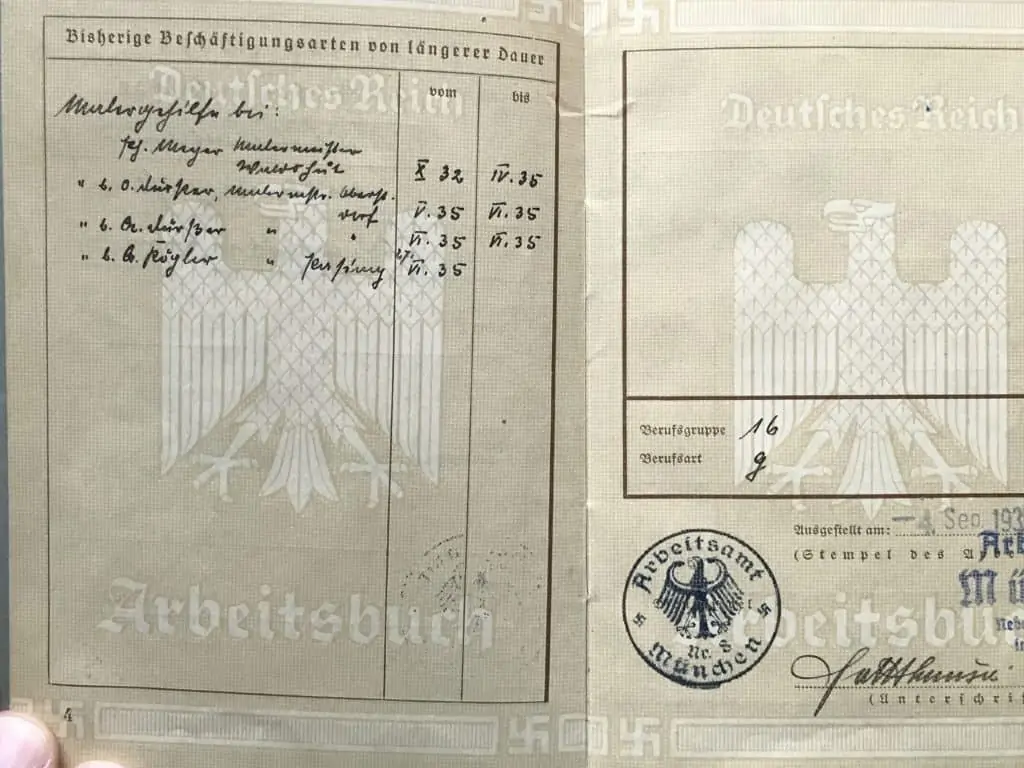 Bisherige Beschäftigungsarten von längerer Dauer
vom bis
Deutsches Reich
Malergehilfe bei:
Meyer Malermeister
Waldshut X 32 IV. 35
" b. O. Malermstr. Oberst-
dorf V. 35 VI. 35
" b. " " VI. 35 VI. 35
" b. Kögler " VI. 35
Arbeitsbuch
4
Deutsches Reich
Berufsgruppe 16
Berufsart g
Ausgestellt am: -4. Sep. 193
(Stempel des A
Arb
Mü
Nebe
Arbeitsamt
Nr. 8
München
Arbeitsbu
(Unterschri